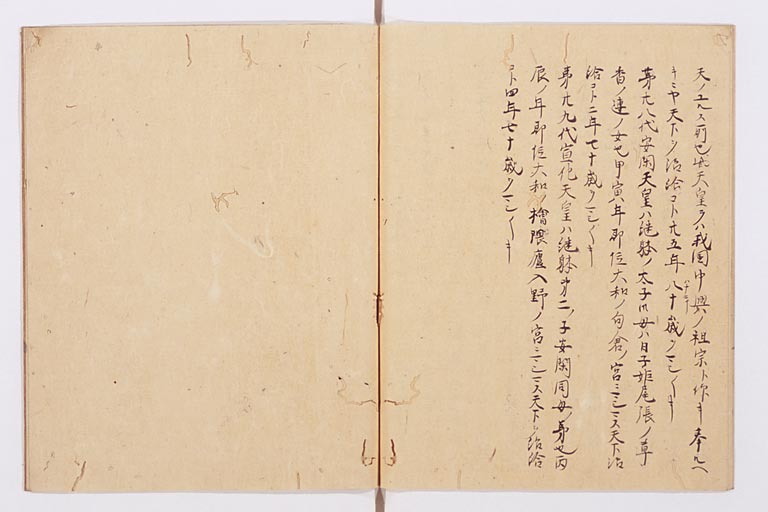 天ノユルス所也此天皇ヲハ我国中興ノ祖宗ト仰キ奉ルヘ
キニヤ天下ヲ治給コト廿五年八十歳ヲマシ〳〵キ
第廿八代安閑天皇ハ継躰ノ太子御母ハ目子姫尾張ノ草
香ノ連ノ女也甲寅年即位大和ノ勾金ノ宮ニマシマス天下治
給コト二年七十歳ヲマシ〳〵キ
第廿九代宣化天皇ハ継躰第二ノ子安閑同母ノ弟也丙
辰ノ年即位大和ノ檜隈廬入野ノ宮ニマシマス天下ヲ治給
コト四年七十歳ヲマシ〳〵キ